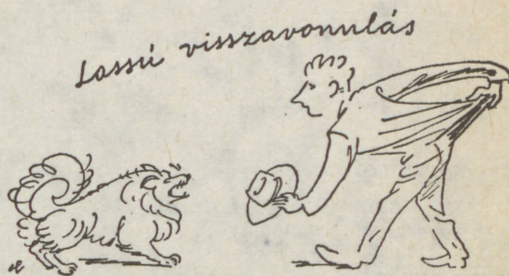 Lassú visszavonulás